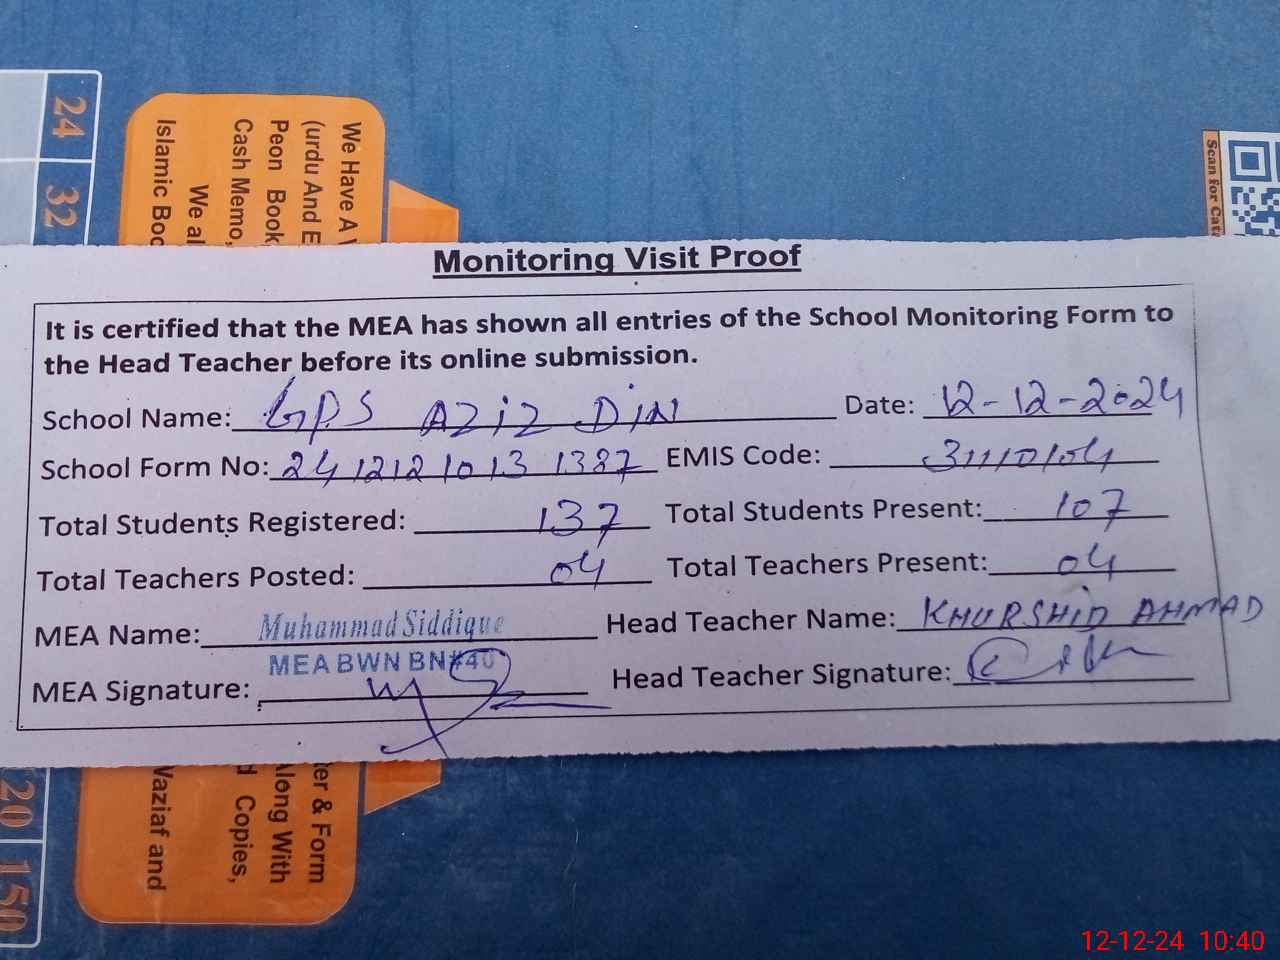 24
32
We Have A
(urdu And E
Peon Book
Cash Memo,
We al
Islamic Boo
Scan for Cat
Monitoring Visit Proof
It is certified that the MEA has shown all entries of the School Monitoring Form to
the Head Teacher before its online submission.
School Name: GPS AZIZ DIN Date: 12-12-2024
School Form No: 24 1212 10 13 1387 EMIS Code: 31110104
Total Students Registered: 137 Total Students Present: 107
Total Teachers Posted: 04 Total Teachers Present: 04
MEA Name: Muhammad Siddique Head Teacher Name: KHURSHID AHMAD
MEA BWN BN#40
MEA Signature: Head Teacher Signature:
ter & Form
Along With
d Copies,
Vaziaf and
20
150
12-12-24 10:40